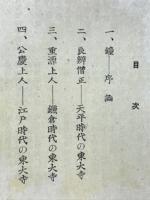 目次
一、鐘――序論
二、良辨僧正――天平時代の東大寺
三、重源上人――鎌倉時代の東大寺
四、公慶上人――江戸時代の東大寺